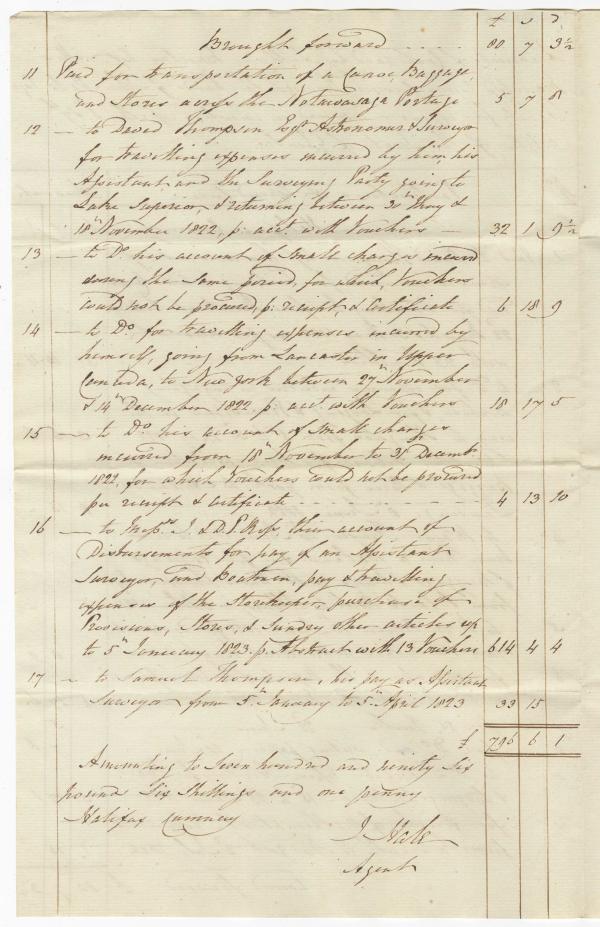 £ s d
Brought forward . . . . 80 7 3½
11 Paid for transportation of a Canoe, Baggage,
and Stores across the Notawasaga Portage 5 7 8
12 — to David Thompson Esqr. Astronomer & Surveyor
for travelling expenses incurred by him, his
Assistant and the Surveying Party going to
Lake Superior, & returning between 30th May &
18th November 1822, p: acct. with Vouchers — 32 1 9½
13 — to Do. his account of Small charges incurred
during the same period, for which, Vouchers
could not be procured, p: receipt, & Certificate 6 18 9
14 — to Do. for travelling expenses incurred by
himself, going from Lancaster in Upper
Canada, to New York between 27th November
& 14th December 1822, p: acct. with Vouchers 18 17 5
15 — to Do. his account of Small charges
incurred from 18th November to 31st Decembr.
1822, for which Vouchers could not be procured
per receipt & certificate - - - - - - 4 13 10
16 — to Messrs. J. & D. P. Ross, their account of
Disbursements for pay of an Assistant
Surveyor, and Boatmen, pay & travelling
expenses of the Storekeeper, purchase of
Provisions, Stores, & Sundry other articles up
to 5th January 1823 p. Abstract with 13 Vouchers 614 4 4
17 — to Samuel Thompson, his pay as Assistant
Surveyor from 5th January to 5th April 1823 33 15
£ 796 6 1
Amounting to Seven hundred and ninety Six
pounds Six Shillings and one penny
Halifax Currency
J Hale
Agent